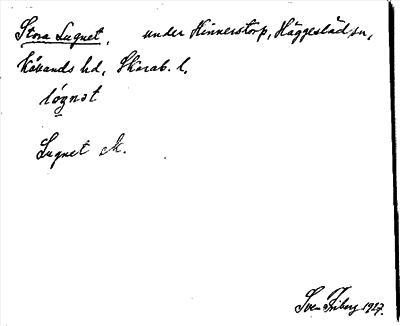 Stora Lugnet, under Hinnerstorp, Häggesled sn,
Kållands hd, Skarab. l.
lógnət
Lugnet M.
Sven Friberg 1927.